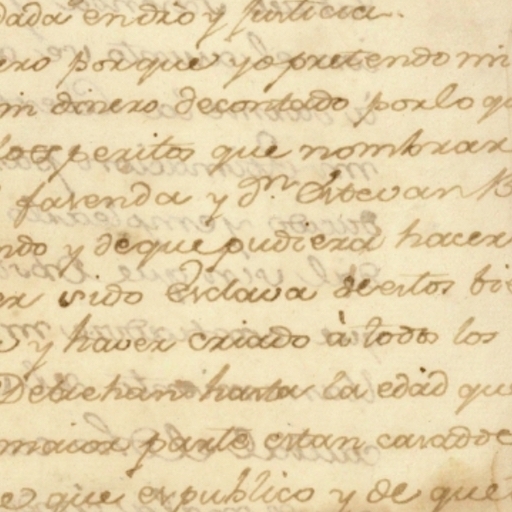 dada en dro y justicia.
ero porque yo pretendo mi
mi dinero descontado por lo qu
los peritos que nombrar
fasenda y dn. Estevan B
ndo y de que pudiera hacer
er sido esclava de estos bie
y haver criado à todos los
Debehan hasta la edad que
maior parte estan casados
e que es publico y de que